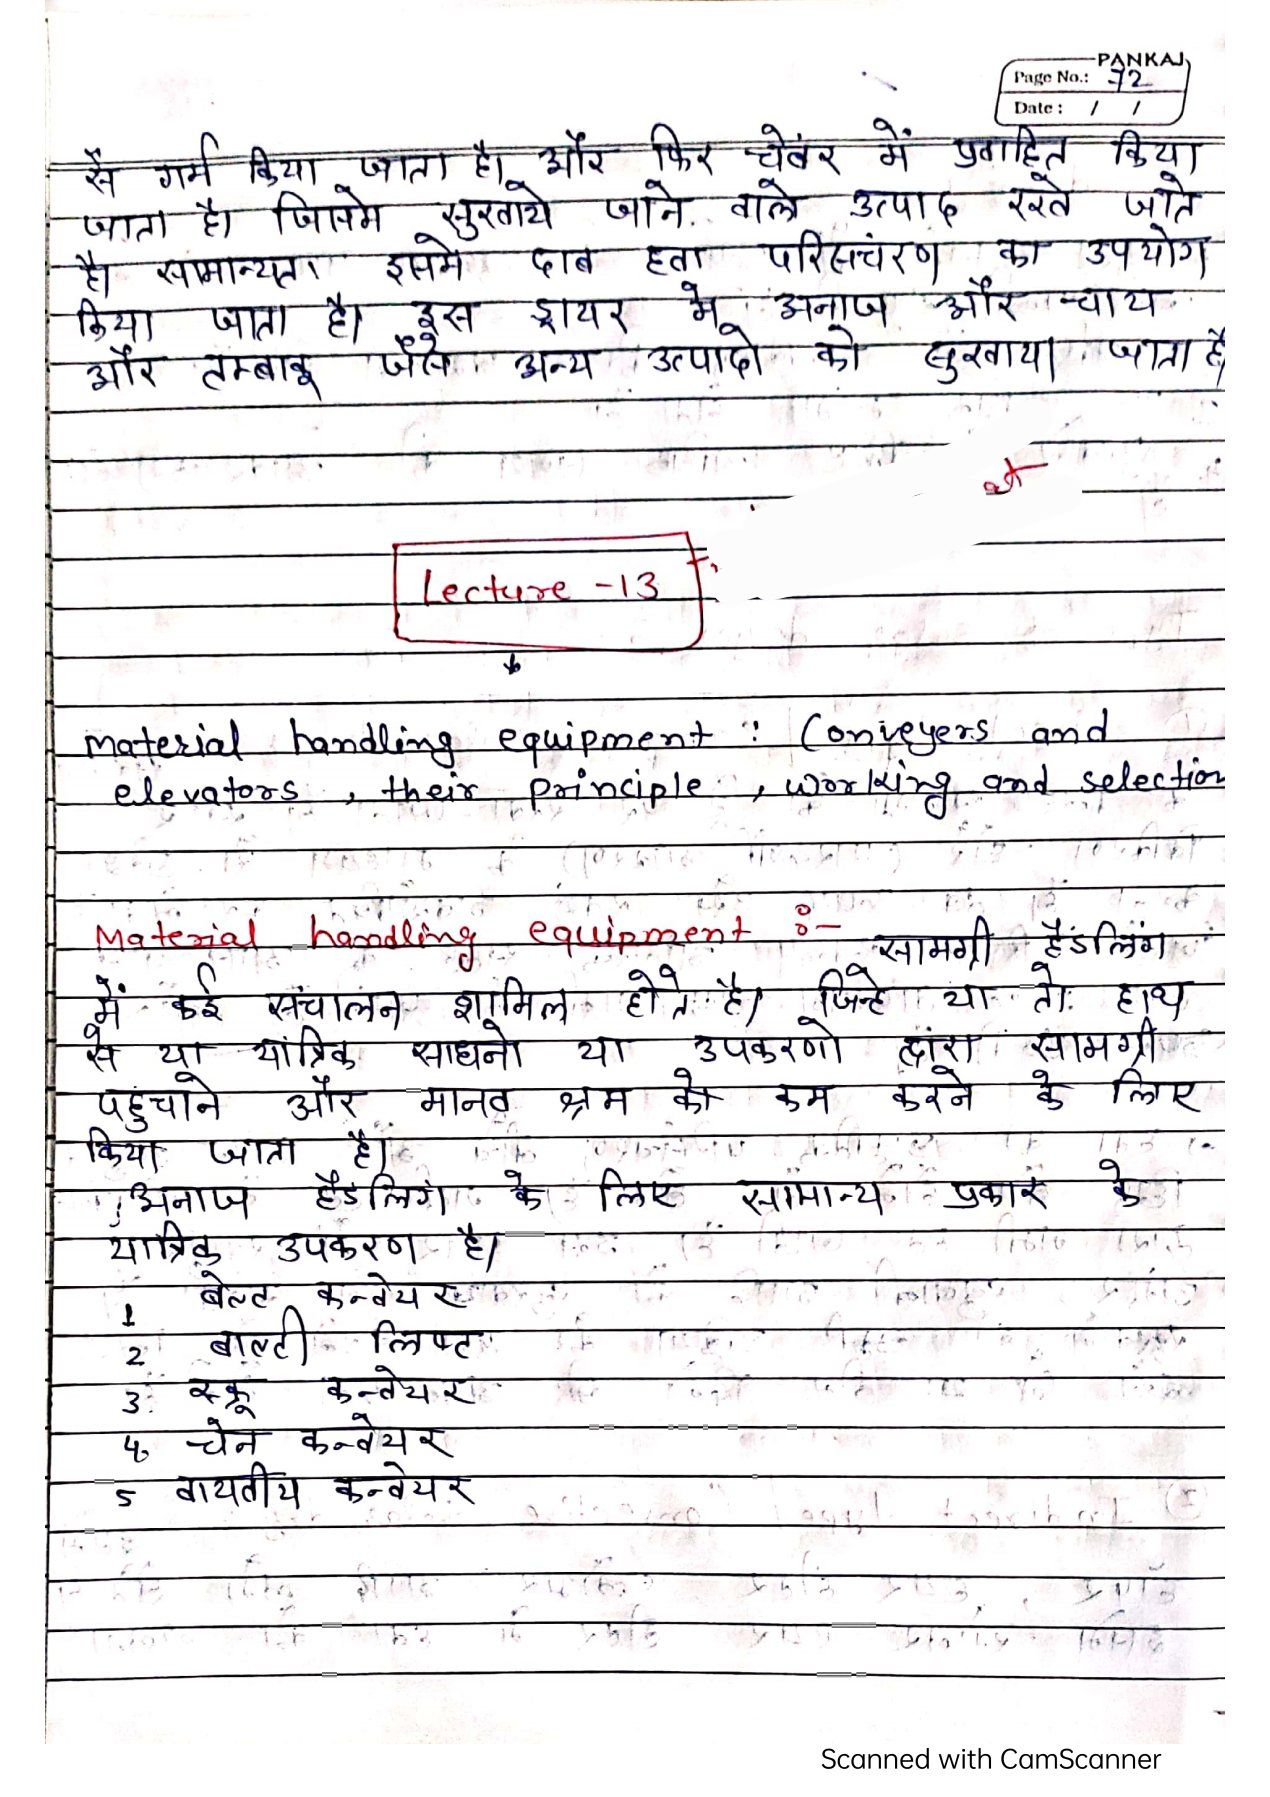 PANKAJ
Page No.: 72
Date : / /
से गर्म किया जाता है। और फिर चेबंर में प्रवाहित किया
जाता है। जिसमे सुखाये जाने वाले उत्पाद रखे जाते
है। सामान्यतः इसमे दाब हवा परिसंचंरण का उपयोग
किया जाता है। इस ड्रायर मे अनाज और चाय
और तम्बाकू जैसे अन्य उत्पादो को सुखाया जाता है
Lecture -13
Material handling equipment : Conveyers and
elevators , their principle , working and selection
Material handling equipment :- सामग्री हैंडलिंग
में कई संचालन शामिल होते है। जिन्हे या तो हाथ
से या यांत्रिक साधनो या उपकरणो द्वारा सामग्री
पहुंचाने और मानव श्रम को कम करने के लिए
किया जाता है।
अनाज हैडलिंग के लिए सामान्य प्रकार के
यांत्रिक उपकरण है।
1 बेल्ट कन्वेयर
2 बाल्टी लिफ्ट
3. स्क्रू कन्वेयर
4. चेन कन्वेयर
5 वायवीय कन्वेयर
Scanned with CamScanner